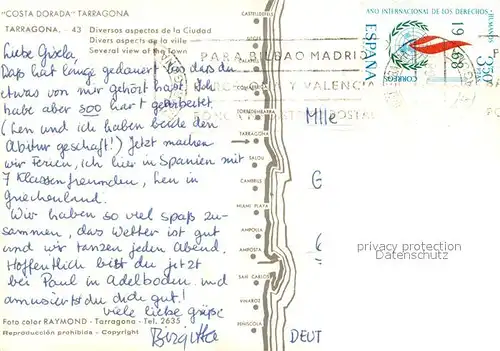 "COSTA DORADA" TARRAGONA
TARRAGONA. - 43 Diversos aspectos de la Ciudad
Divers aspects de la ville
Several view of the Town
Liebe Gisela,
Das hat lange gedauert, bis du
etwas von mir gehört hast. Ich
habe aber soo hart gearbeitet.
(Len und ich haben beide den
Abitur geschafft!) Jetzt machen
wir Ferien, ich hier in Spanien mit
7 Klassenfreunden, Len in
Griechenland.
Wir haben so viel Spaß zu-
sammen, das Wetter ist gut
und wir tanzen jeden Abend.
Hoffentlich bist du jetzt
bei Paul in Adelboden und
amusierst du dich gut!
viele liebe Grüße
Birgitta
Foto color RAYMOND - Tarragona - Tel. 2635
Reproducción prohibida - Copyright
CASTELLDEFELS
SITGES
CALAFELL
TORREDEMBARRA
TARRAGONA
SALOU
CAMBRILS
MIAMI PLAYA
AMPOLLA
AMPOSTA
SAN CARLOS
VINAROZ
BENICARLO
PEÑISCOLA
AÑO INTERNACIONAL DE LOS DERECHOS HUMANOS
1968
3,50 PTAS
CORREOS
ESPAÑA
PARA BILBAO MADRID
Y VALENCIA
POSTAL
Mlle
G
privacy protection
watermark
DEUT